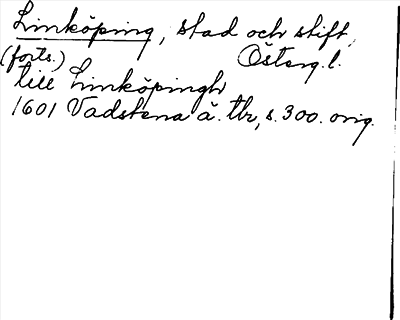 Linköping, stad och stift,
(forts.) Österg.l.
till Linköpingh
1601 Vadstena ä. tbr, s. 300. orig.